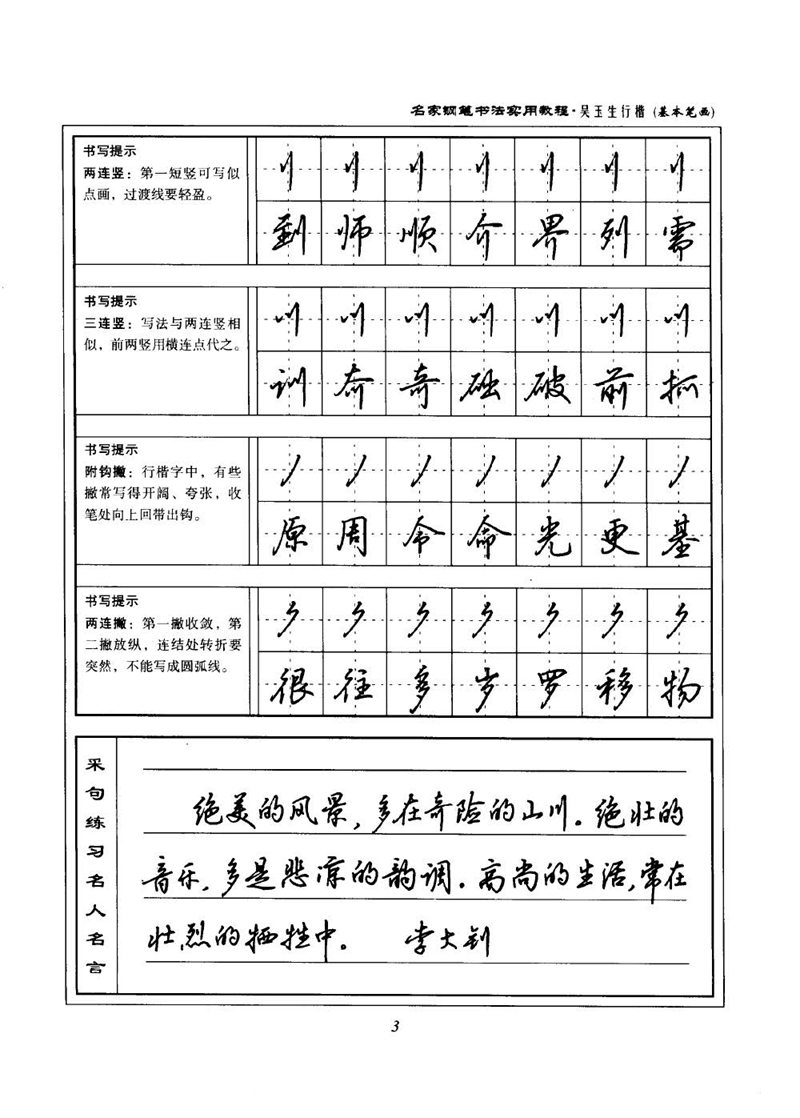 名家钢笔书法实用教程·吴玉生行楷（基本笔画）
书写提示
两连竖：第一短竖可写似
点画，过渡线要轻盈。
到 师 顺 介 界 列 需
书写提示
三连竖：写法与两连竖相
似，前两竖用横连点代之。
训 奔 奇 础 破 前 抓
书写提示
附钩撇：行楷字中，有些
撇常写得开阔、夸张，收
笔处向上回带出钩。
原 周 令 命 光 更 基
书写提示
两连撇：第一撇收敛，第
二撇放纵，连结处转折要
突然，不能写成圆弧线。
很 往 多 岁 罗 移 物
采句练习名人名言
绝美的风景，多在奇险的山川。绝壮的
音乐，多是悲凉的韵调。高尚的生活，常在
壮烈的牺牲中。 李大钊
3